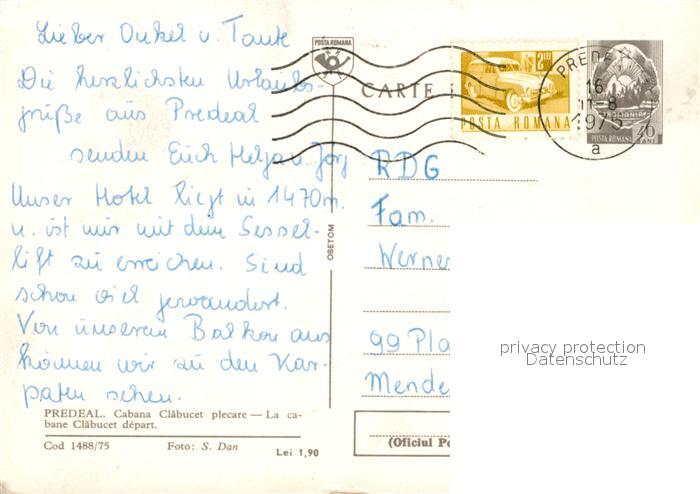 Lieber Onkel u. Tante
Die herzlichsten Urlaubs-
grüße aus Predeal
senden Euch Helga u. Jörg
Unser Hotel liegt in 1470m.
u. ist nur mit dem Sessel-
lift zu erreichen. Sind
schon viel gewandert.
Von unserem Balkon aus
können wir zu den Kar-
paten sehen.
PREDEAL. Cabana Clăbucet plecare — La ca-
bane Clăbucet départ.
Cod 1488/75 Foto: S. Dan
Lei 1,90
OSETCM
POSTA ROMANA
CARTE
2 LEI
POSTA ROMANA
PREDE
16
11-8
1975
a
ROMANIA
POSTA ROMANA
40
BANI
RDG
Fam.
Werne
99 Pla
Mende
(Oficiul Po
privacy protection
Datenschutz